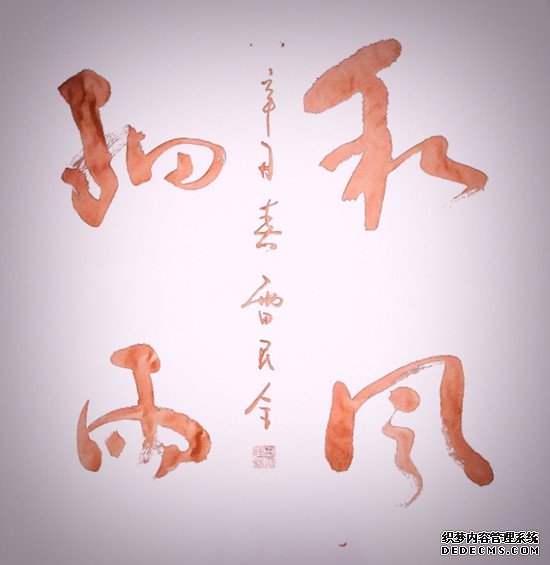 和风
细雨
辛丑春 民全
织梦内容管理系统
DEDECMS.COM